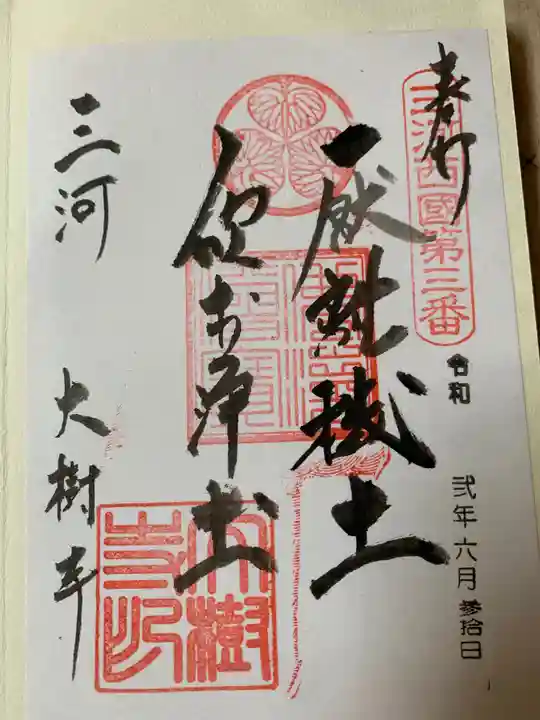 奉拝
三河西國第三番
令和 弐年 六月 参拾日
厭離穢土
欣求浄土
三河 大樹寺
大樹寺印